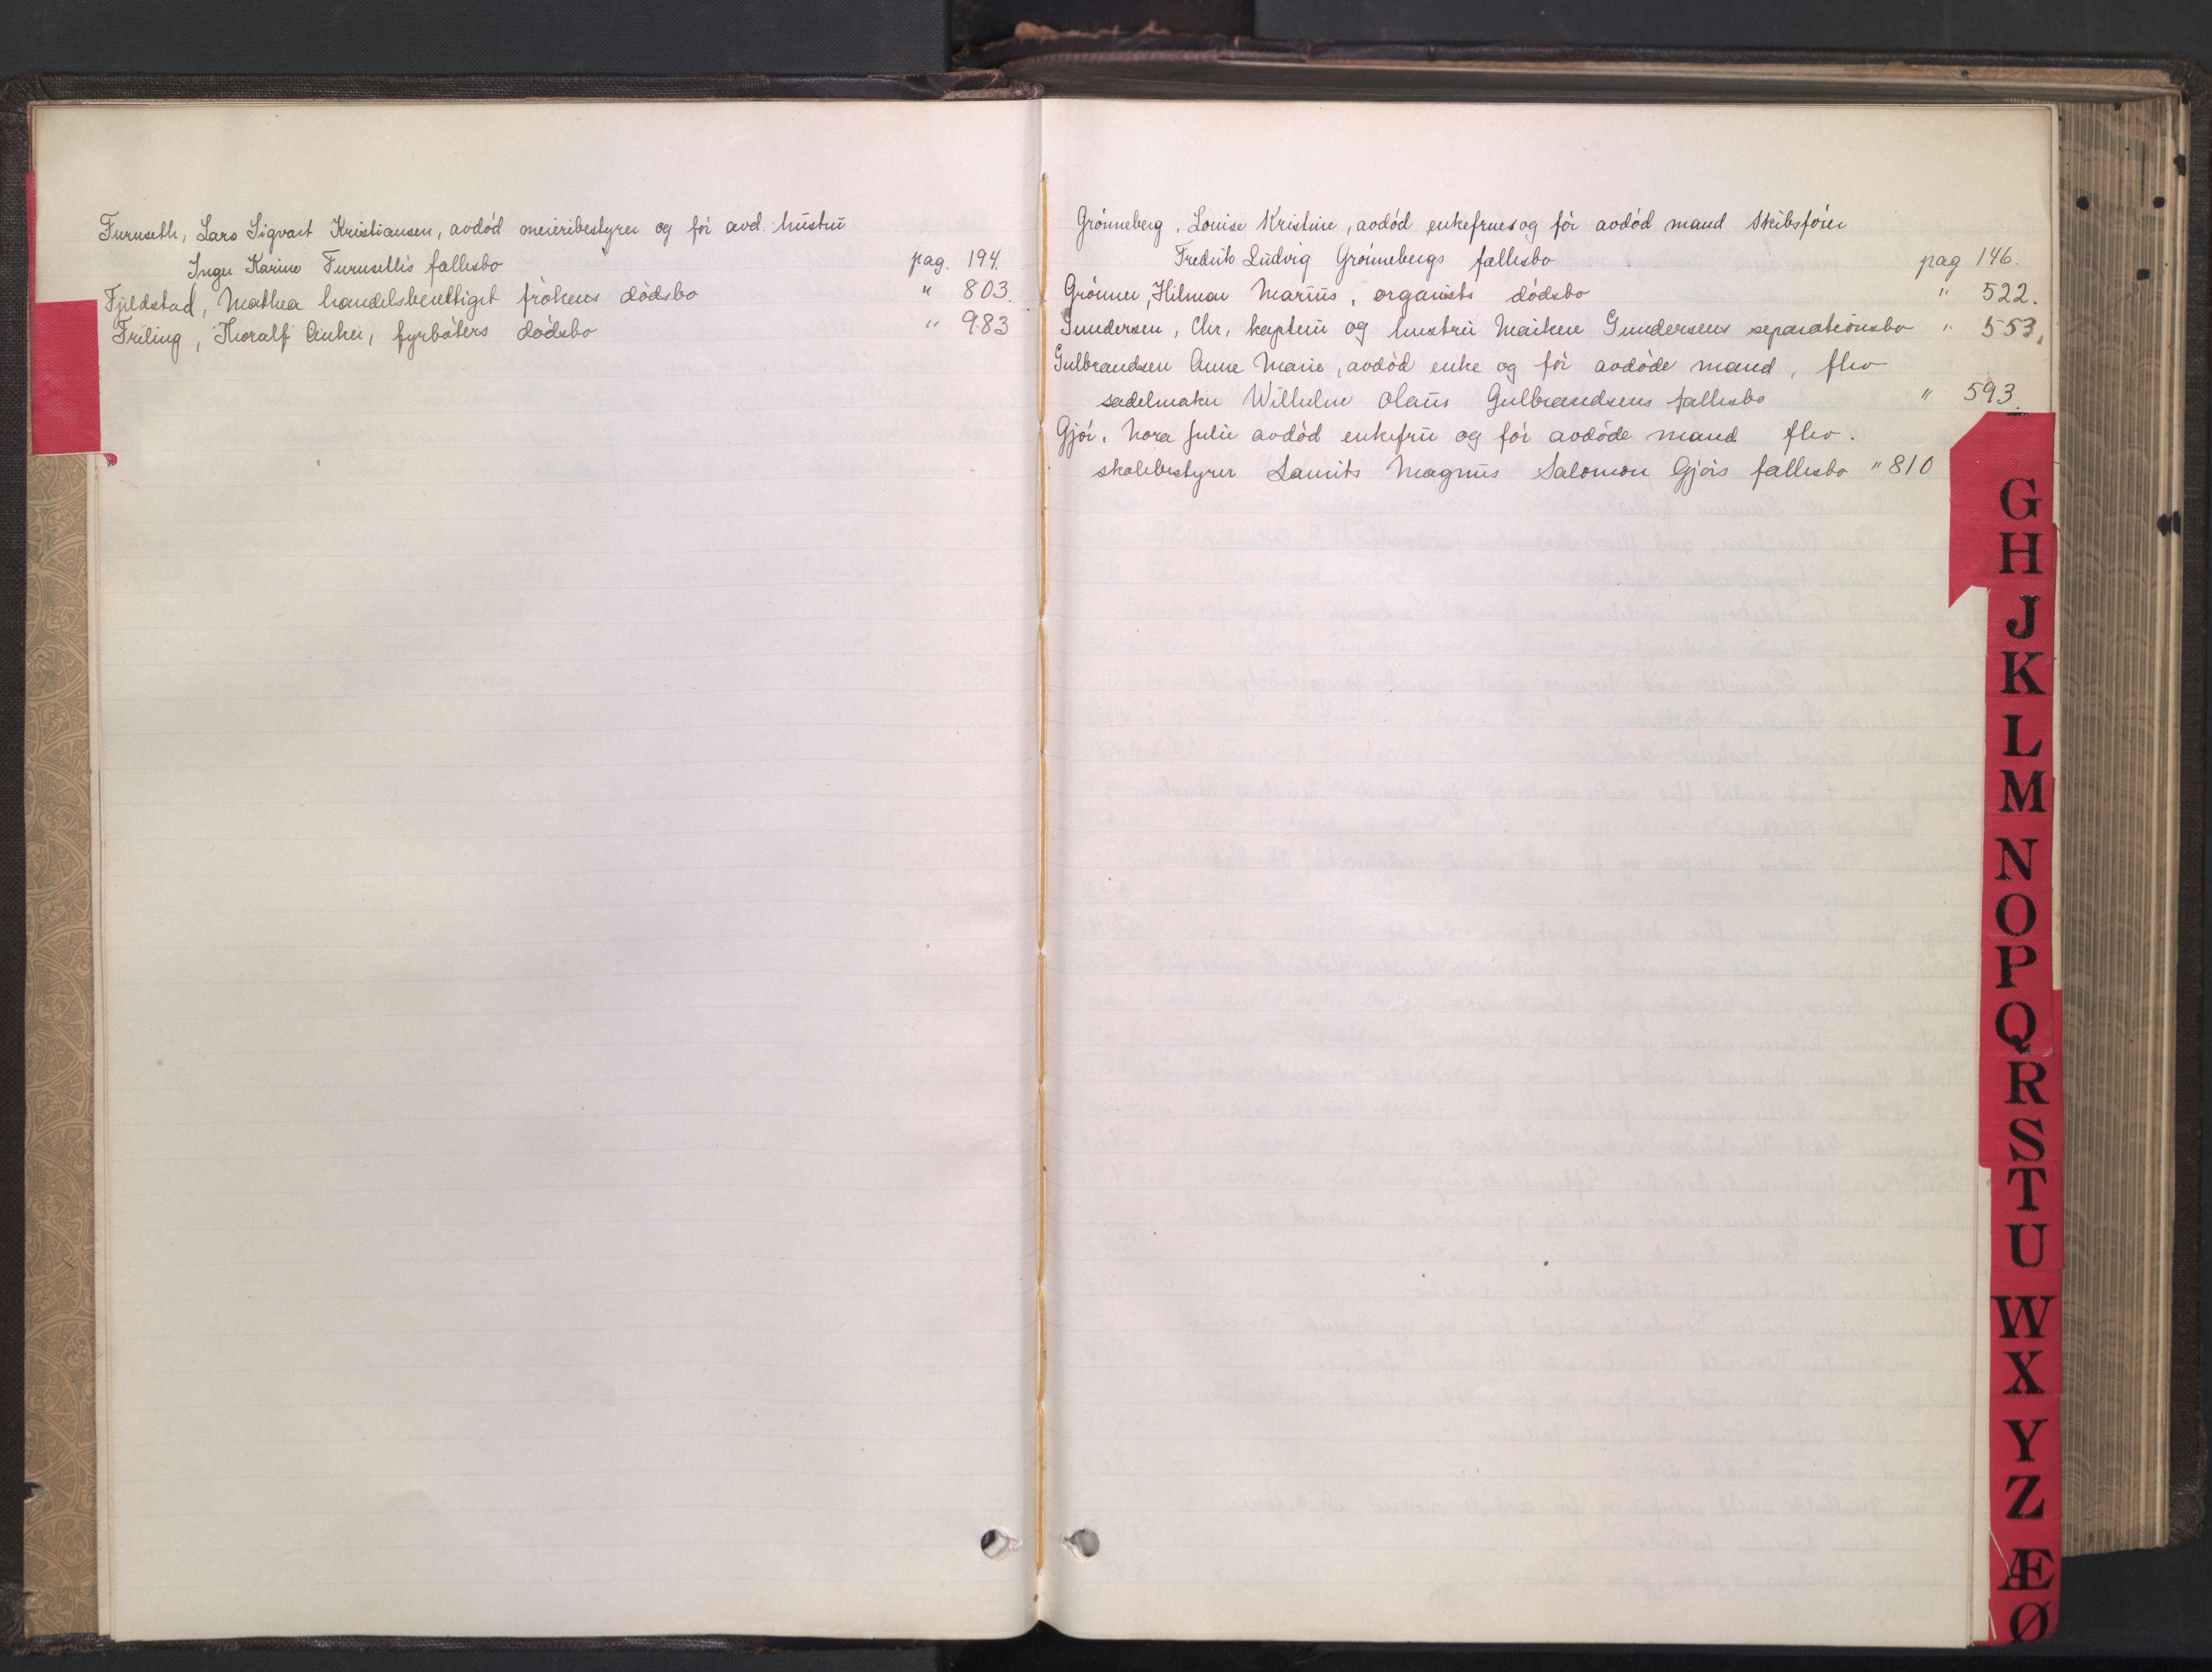 Furuseth, Lars Sigvart Kristiansen, avdöd meieribestyrer og för avd. hustru
Inger Karine Furuseth's fællesbo pag. 194.
Fjeldstad, Mathea handelsberettiget frökens dödsbo " 803.
Friling, Thoralf Anker, fyrböters dödsbo " 983
Grönneberg, Louise Kristine, avdöd enkefrues og för avdöd mand Skibsförer
Fredrik Ludvig Grönnebergs fællesbo pag 146.
Grönner, Hilmar Marius, organists dödsbo " 522.
Gundersen, Chr, kaptein og hustru Maiken Gundersens separationsbo " 553.
Gulbrandsen Anne Marie, avdöd enke og för avdöde mand, fhv
sadelmaker Wilhelm Olaus Gulbrandsens fællesbo " 593.
Gjör, Nora Julie avdöd enkefru og för avdöde mand fhv.
skolebestyrer Laurits Magnus Salomon Gjörs fællesbo " 810
G
H
J
K
L
M
N
O
P
Q
R
S
T
U
W
X
Y
Z
Æ
Ø